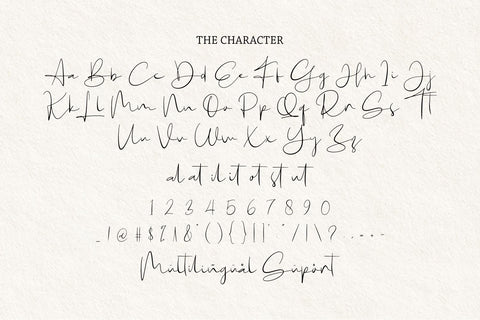 THE CHARACTER
Aa Bb Cc Dd Ee Ff Gg Hh Ii Jj
Kk Ll Mm Nn Oo Pp Qq Rr Ss Tt
Uu Vv Ww Xx Yy Zz
al at il it ot st ut
1 2 3 4 5 6 7 8 9 0
_ ! @ # $ % & ( ) { } | / \ ?
Multilingual Suport